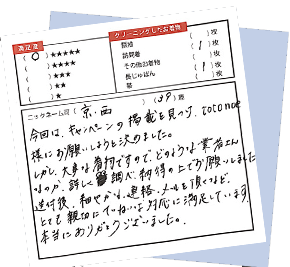 満足度
(○)★★★★★
( )★★★★
( )★★★
( )★★
( )★
クリーニングしたお着物
訪問着
その他お着物 (1)枚
長じゅばん (1)枚
帯 ( )枚
ニックネーム可(京・西)(39)歳
今回は、キャンペーンの掲載を見つけ、totonoe
様にお願いしようと決めました。
しかし、大事な着物ですので、どのような業者さん
なのか、詳しく調べ、納得の上でお願いしました
送付後、細やかな連絡メールを頂くなど、
とても親切にていねいな対応に満足しています。
本当にありがとうございました。